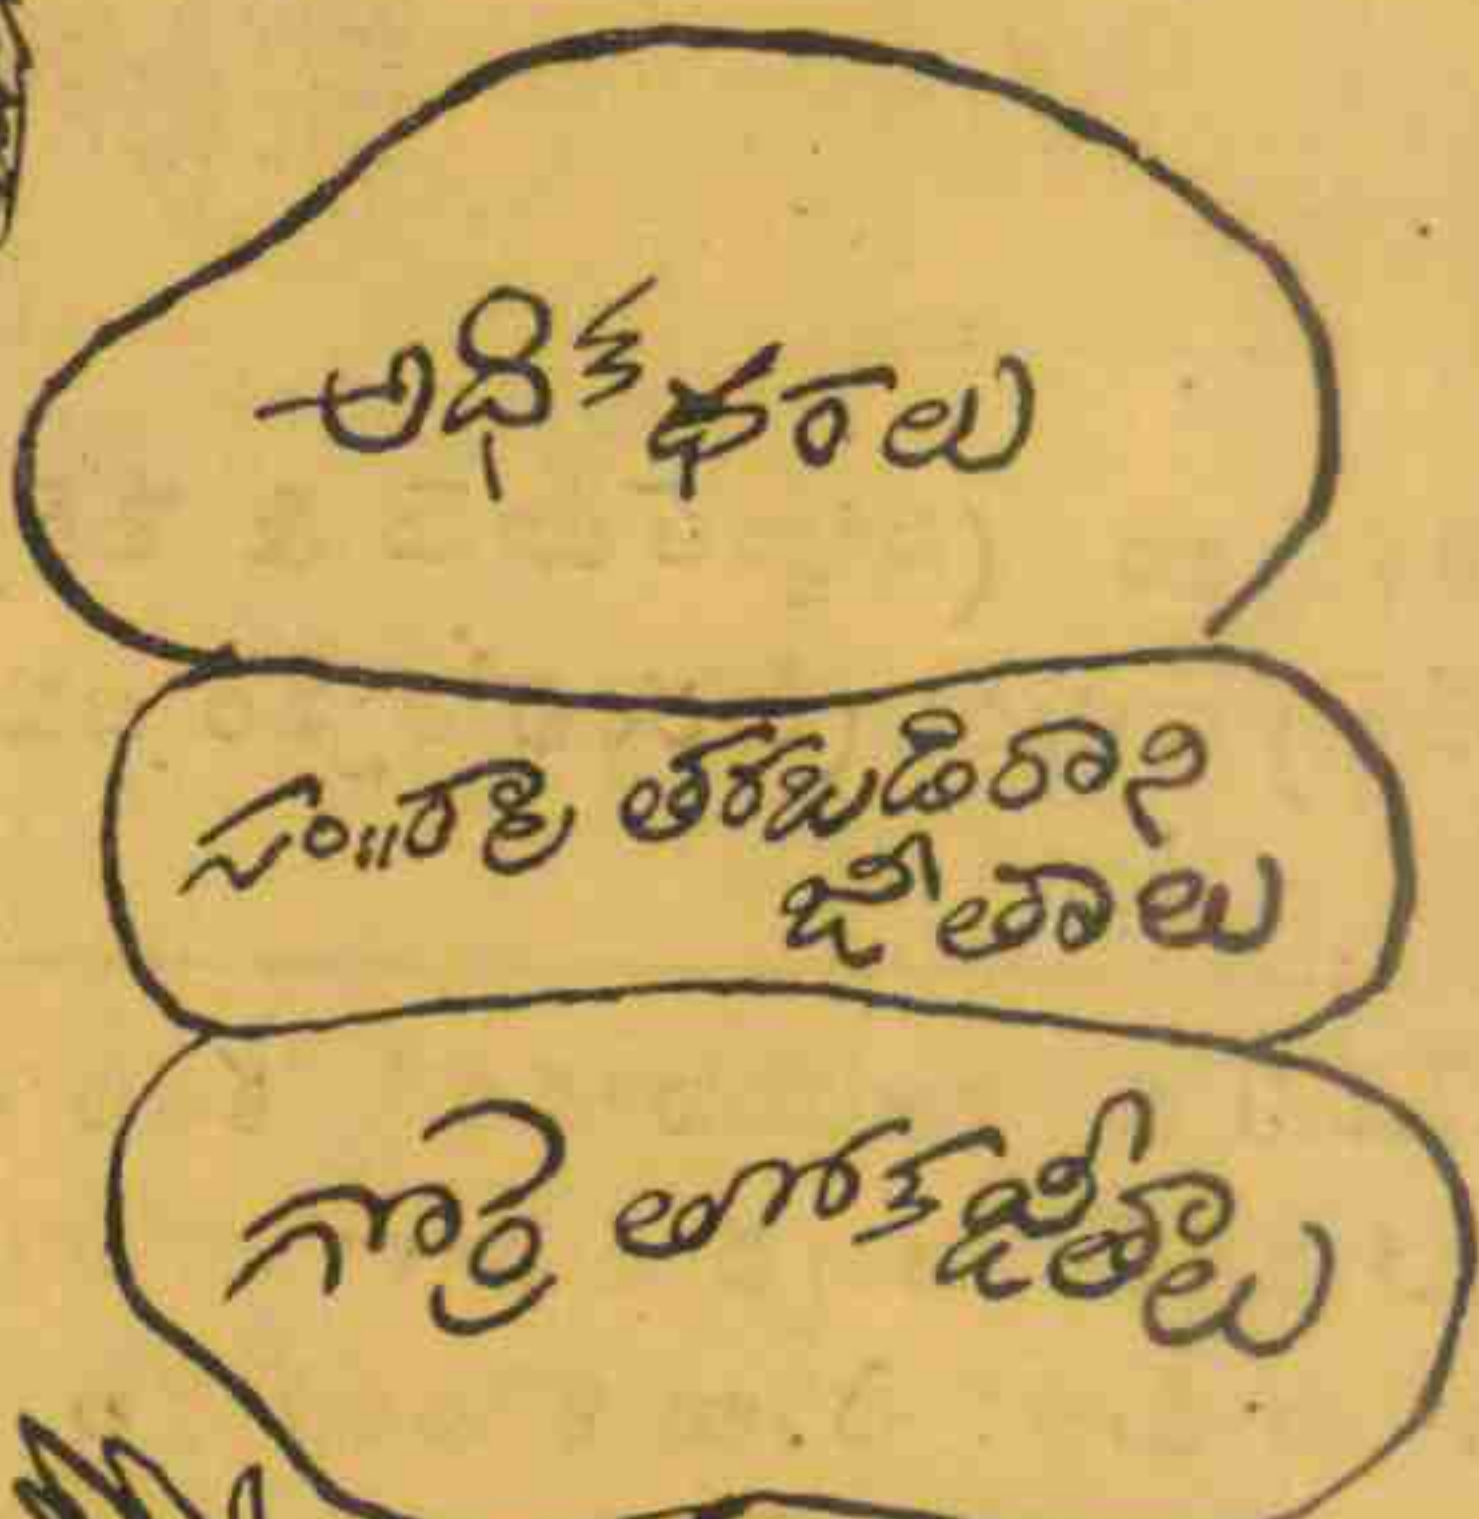 అధిక ధరలు
సం॥రాల తరబడిరాని
జీతాలు
గొర్రె తోకజీతాలు